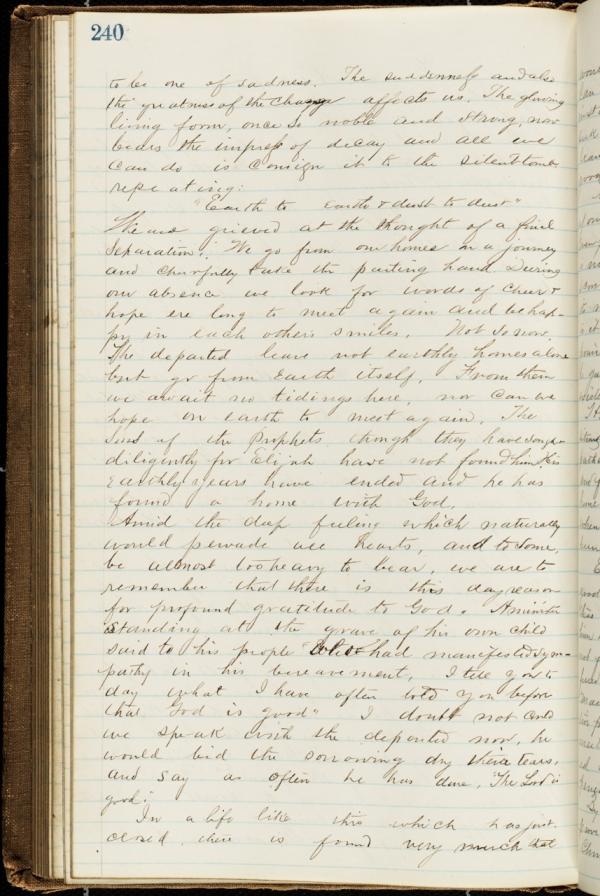 240
to be one of sadness. The suddenness and also
the greatness of the change affects us. The glowing
living form, once so noble and strong, now
bears the impress of decay and all we
can do is consign it to the silent tomb
repeating:
"Earth to earth & dust to dust"
We are grieved at the thought of a final
separation. We go from our homes on a journey
and cheerfully take the parting hand. During
our absence we look for words of cheer &
hope ere long to meet again and be hap-
py in each others smiles. Not so now.
The departed leave not earthly homes alone
but go from Earth itself. From them
we await no tidings here, nor can we
hope on earth to meet again. The
Sons of the Prophets though they have sought
diligently for Elijah have not found him. His
Earthly years have ended and he has
found a home with God.
Amid the deep feeling which naturally
would pervade all hearts, and to some,
be almost too heavy to bear, we are to
remember that there is this day reason
for profound gratitude to God. A minister
standing at the grave of his own child
said to his people who had manifested sym-
pathy in his bereavement, I tell you to
day what I have often told you before
that God is good" I doubt not could
we speak with the departed now, he
would bid the sorrowing dry their tears,
and say as often he has done, "The Lord is
good."
In a life like this which has just
closed, there is found very much that